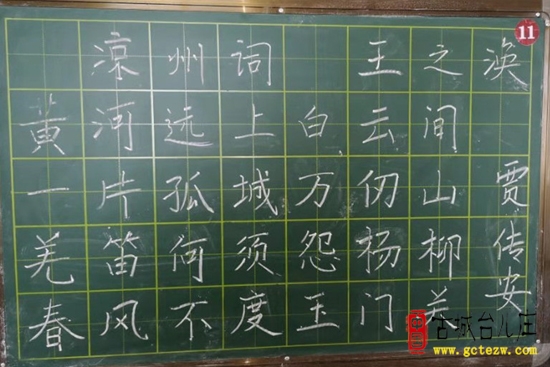 凉州词 王之涣
黄河远上白云间
一片孤城万仞山
羌笛何须怨杨柳
春风不度玉门关
贾传安
11
古城台儿庄
www.gctezw.com